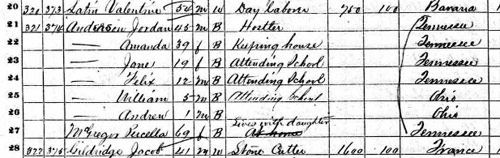 20 320 373 Latin Valentine 54 m W Day Laborer 750 100 Bavaria
21 321 374 Anderson Jordan 45 m B Hostler Tennessee
22 — Amanda 39 f B Keeping house Tennessee
23 — Jane 19 f B Attending School Tennessee
24 — Felix 12 m B Attending School Tennessee
25 — William 5 m B Attending School Ohio
26 — Andrew 1 m B Ohio
27 McGregor Priscella 69 f B Lives with daughter At home Tennessee
28 322 375 Jacob 41 m W Stone Cutter 1600 100 France